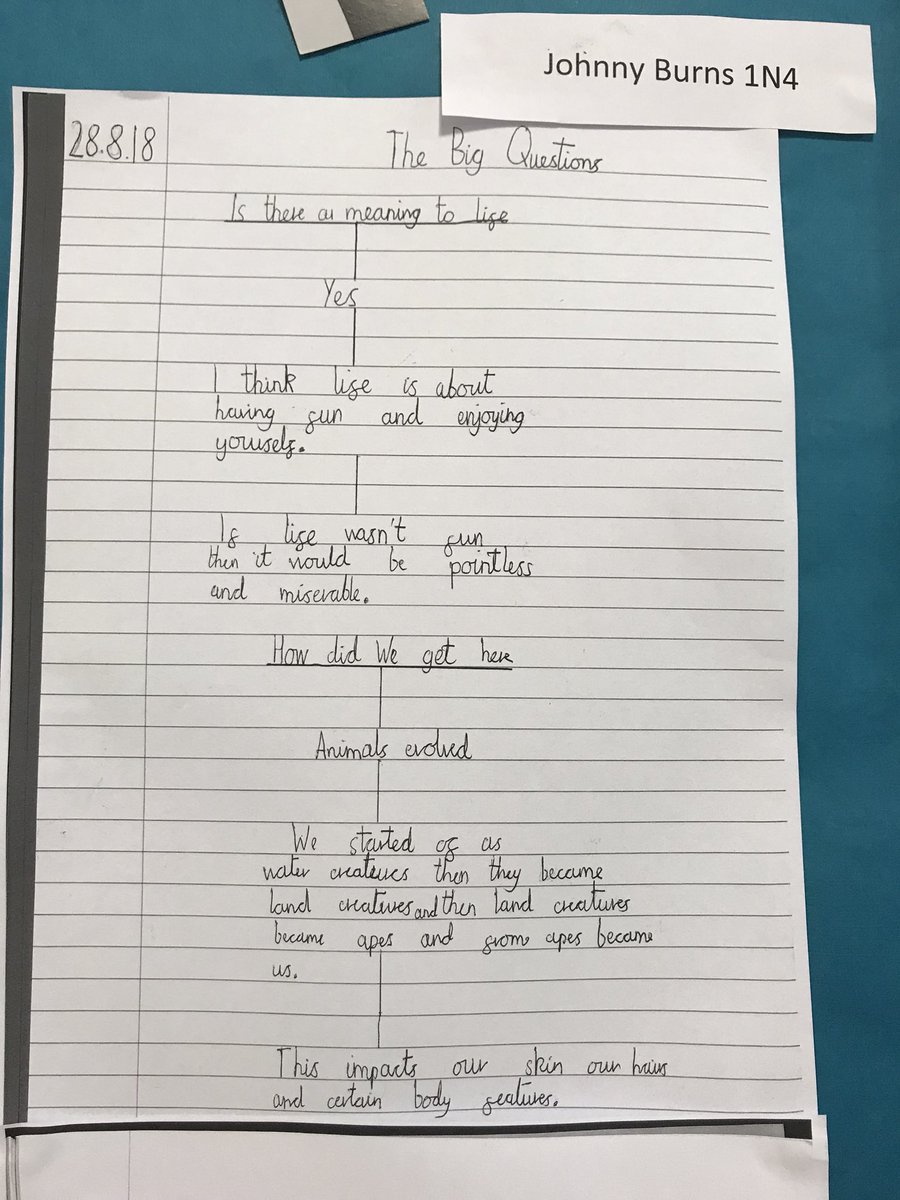 Johnny Burns 1N4
28.8.18
The Big Questions
Is there a meaning to life
Yes
I think life is about
having fun and enjoying
yourself.
If life wasn't fun
then it would be pointless
and miserable.
How did We get here
Animals evolved
We started of as
water creatures then they became
land creatures and then land creatures
became apes and from apes became
us.
This impacts our skin our hairs
and certain body features.